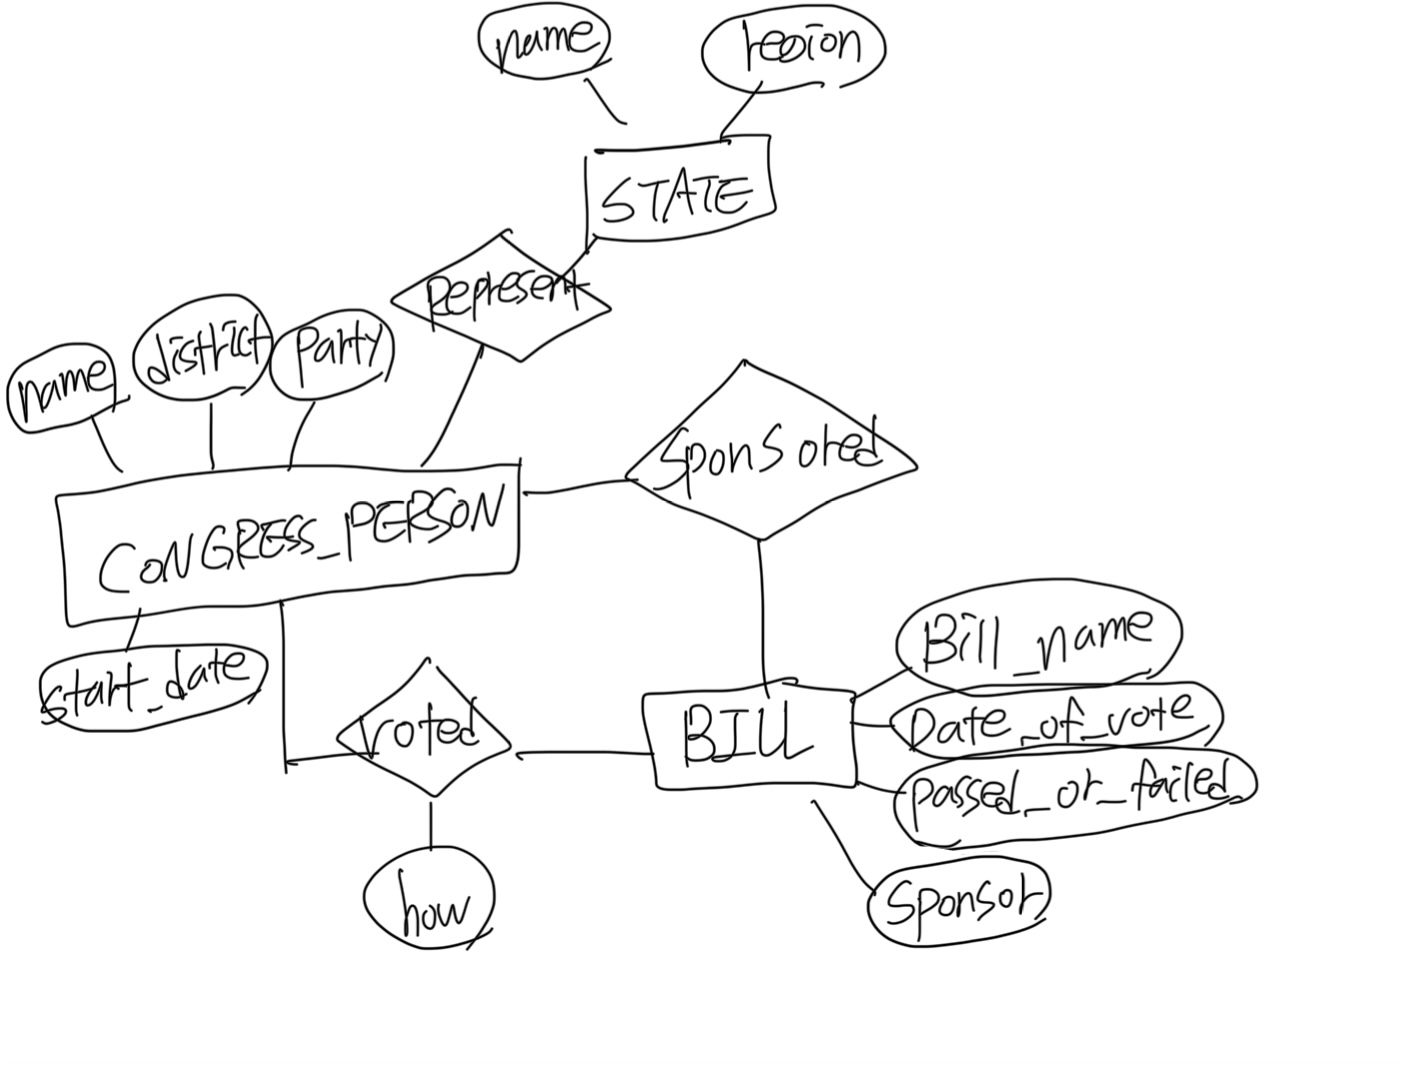 name
region
STATE
Represent
name
district
Party
Sponsored
CONGRESS_PERSON
start_date
voted
BILL
Bill_name
Date_of_vote
passed_or_failed
how
Sponsor